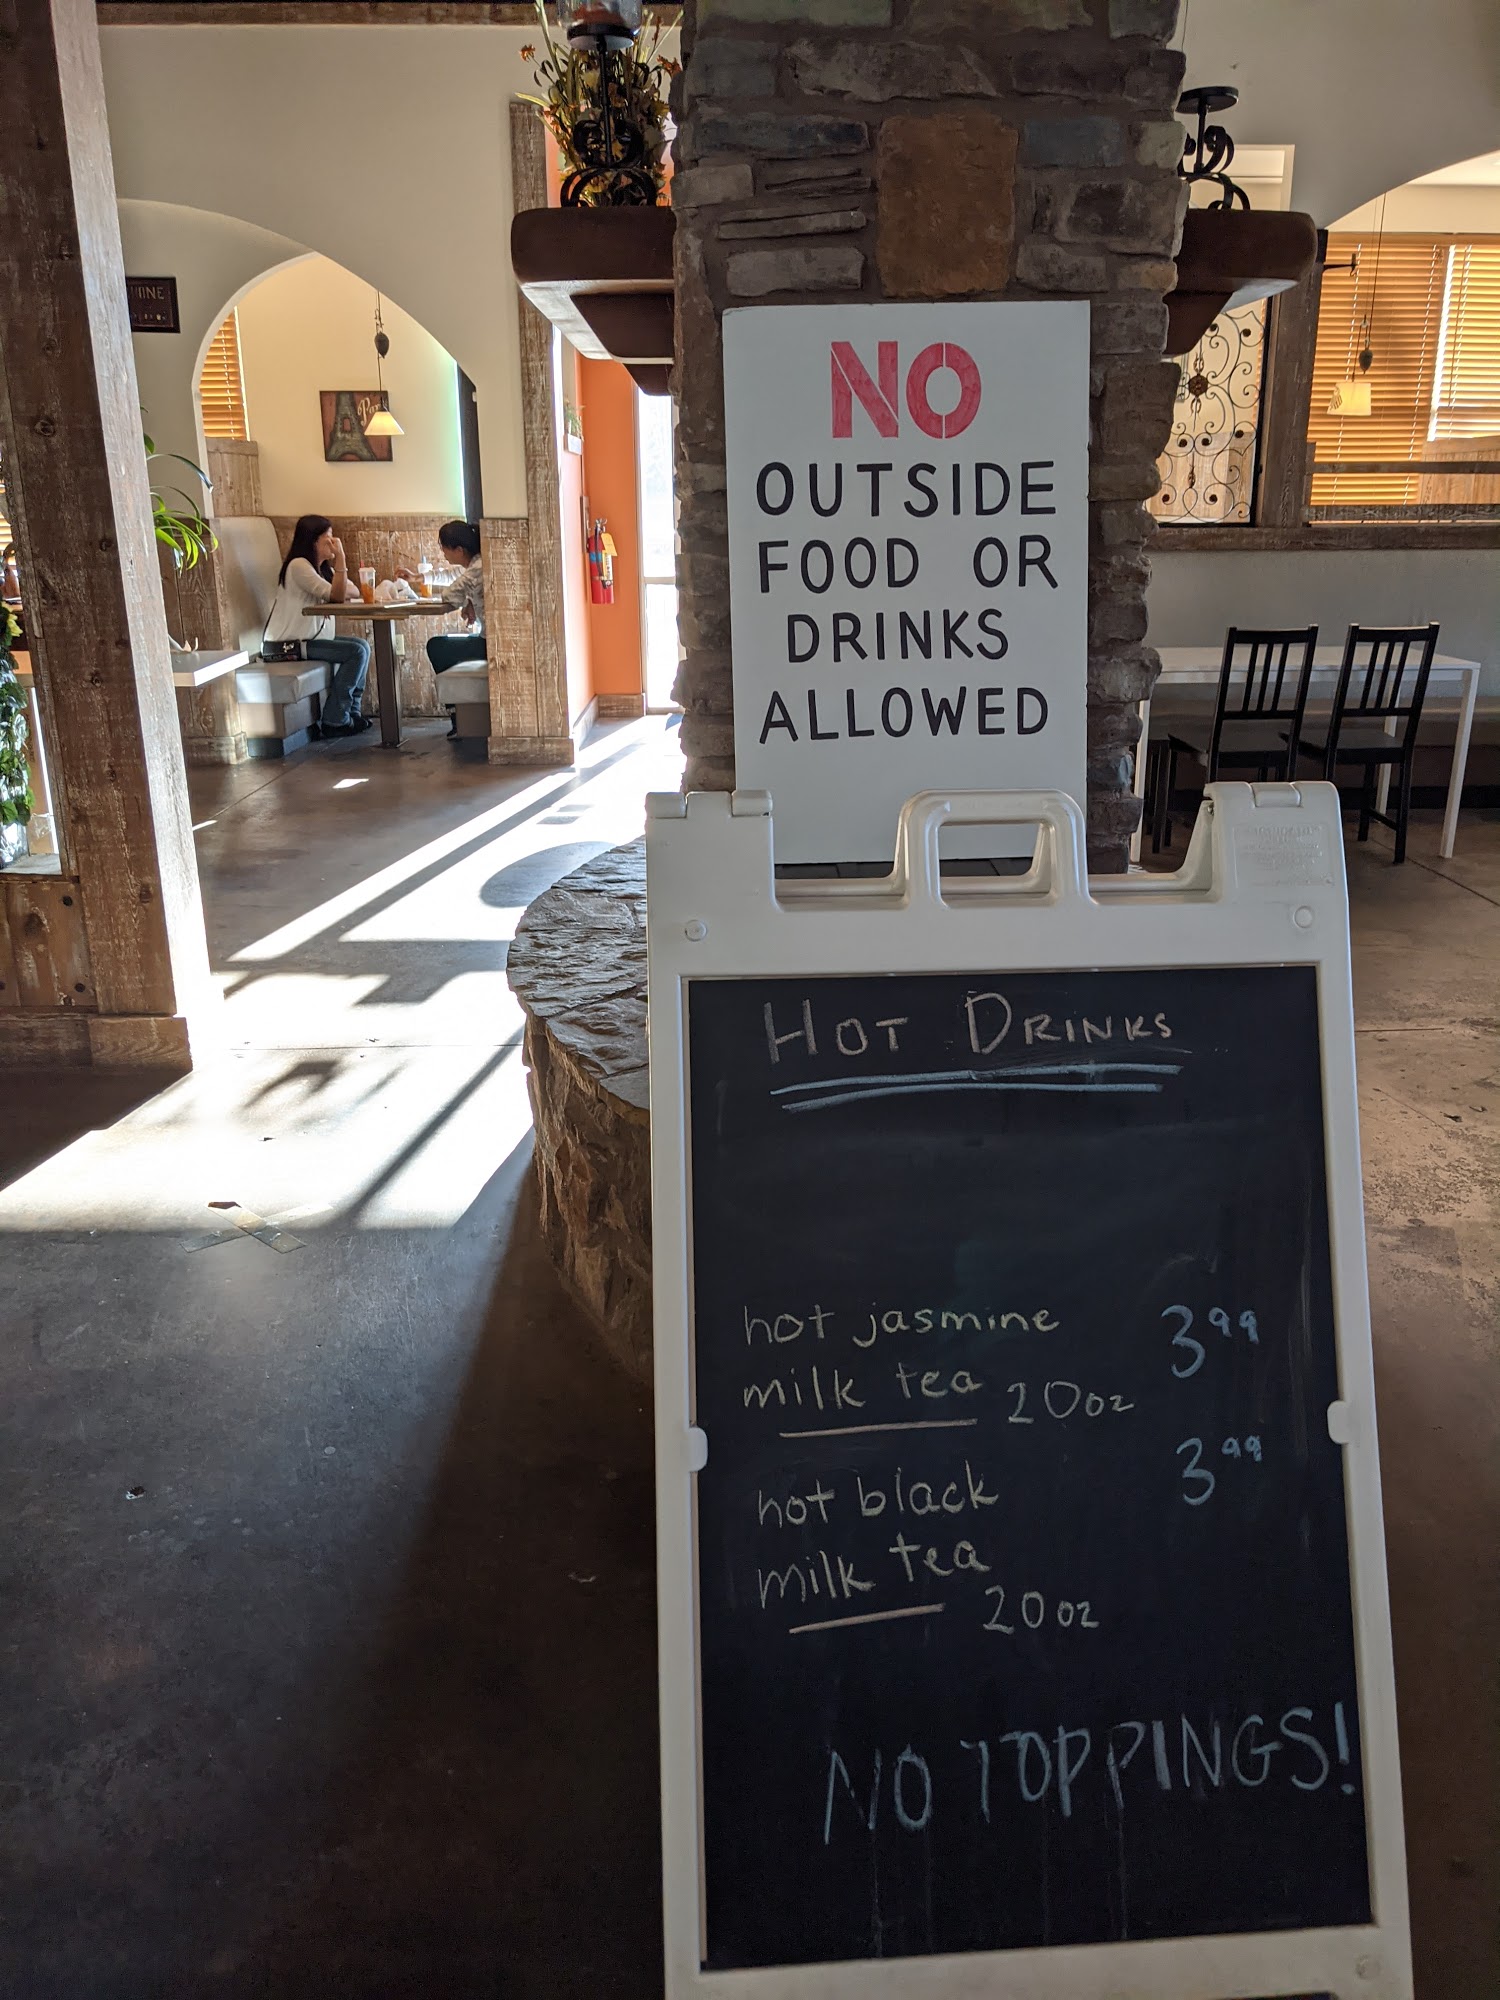 NO
OUTSIDE
FOOD OR
DRINKS
ALLOWED
HOT DRINKS
hot jasmine 3.99
milk tea 20oz
hot black 3.99
milk tea
20oz
NO TOPPINGS!